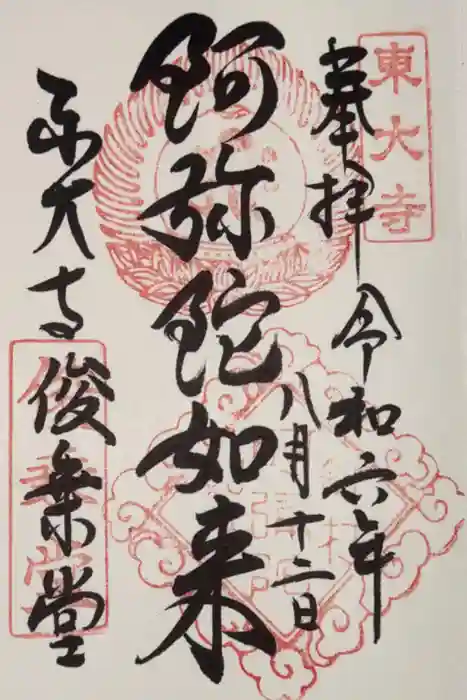 東大寺
奉拝 令和六年
八月十二日
阿弥陀如来
東大寺俊乗堂
俊乗堂